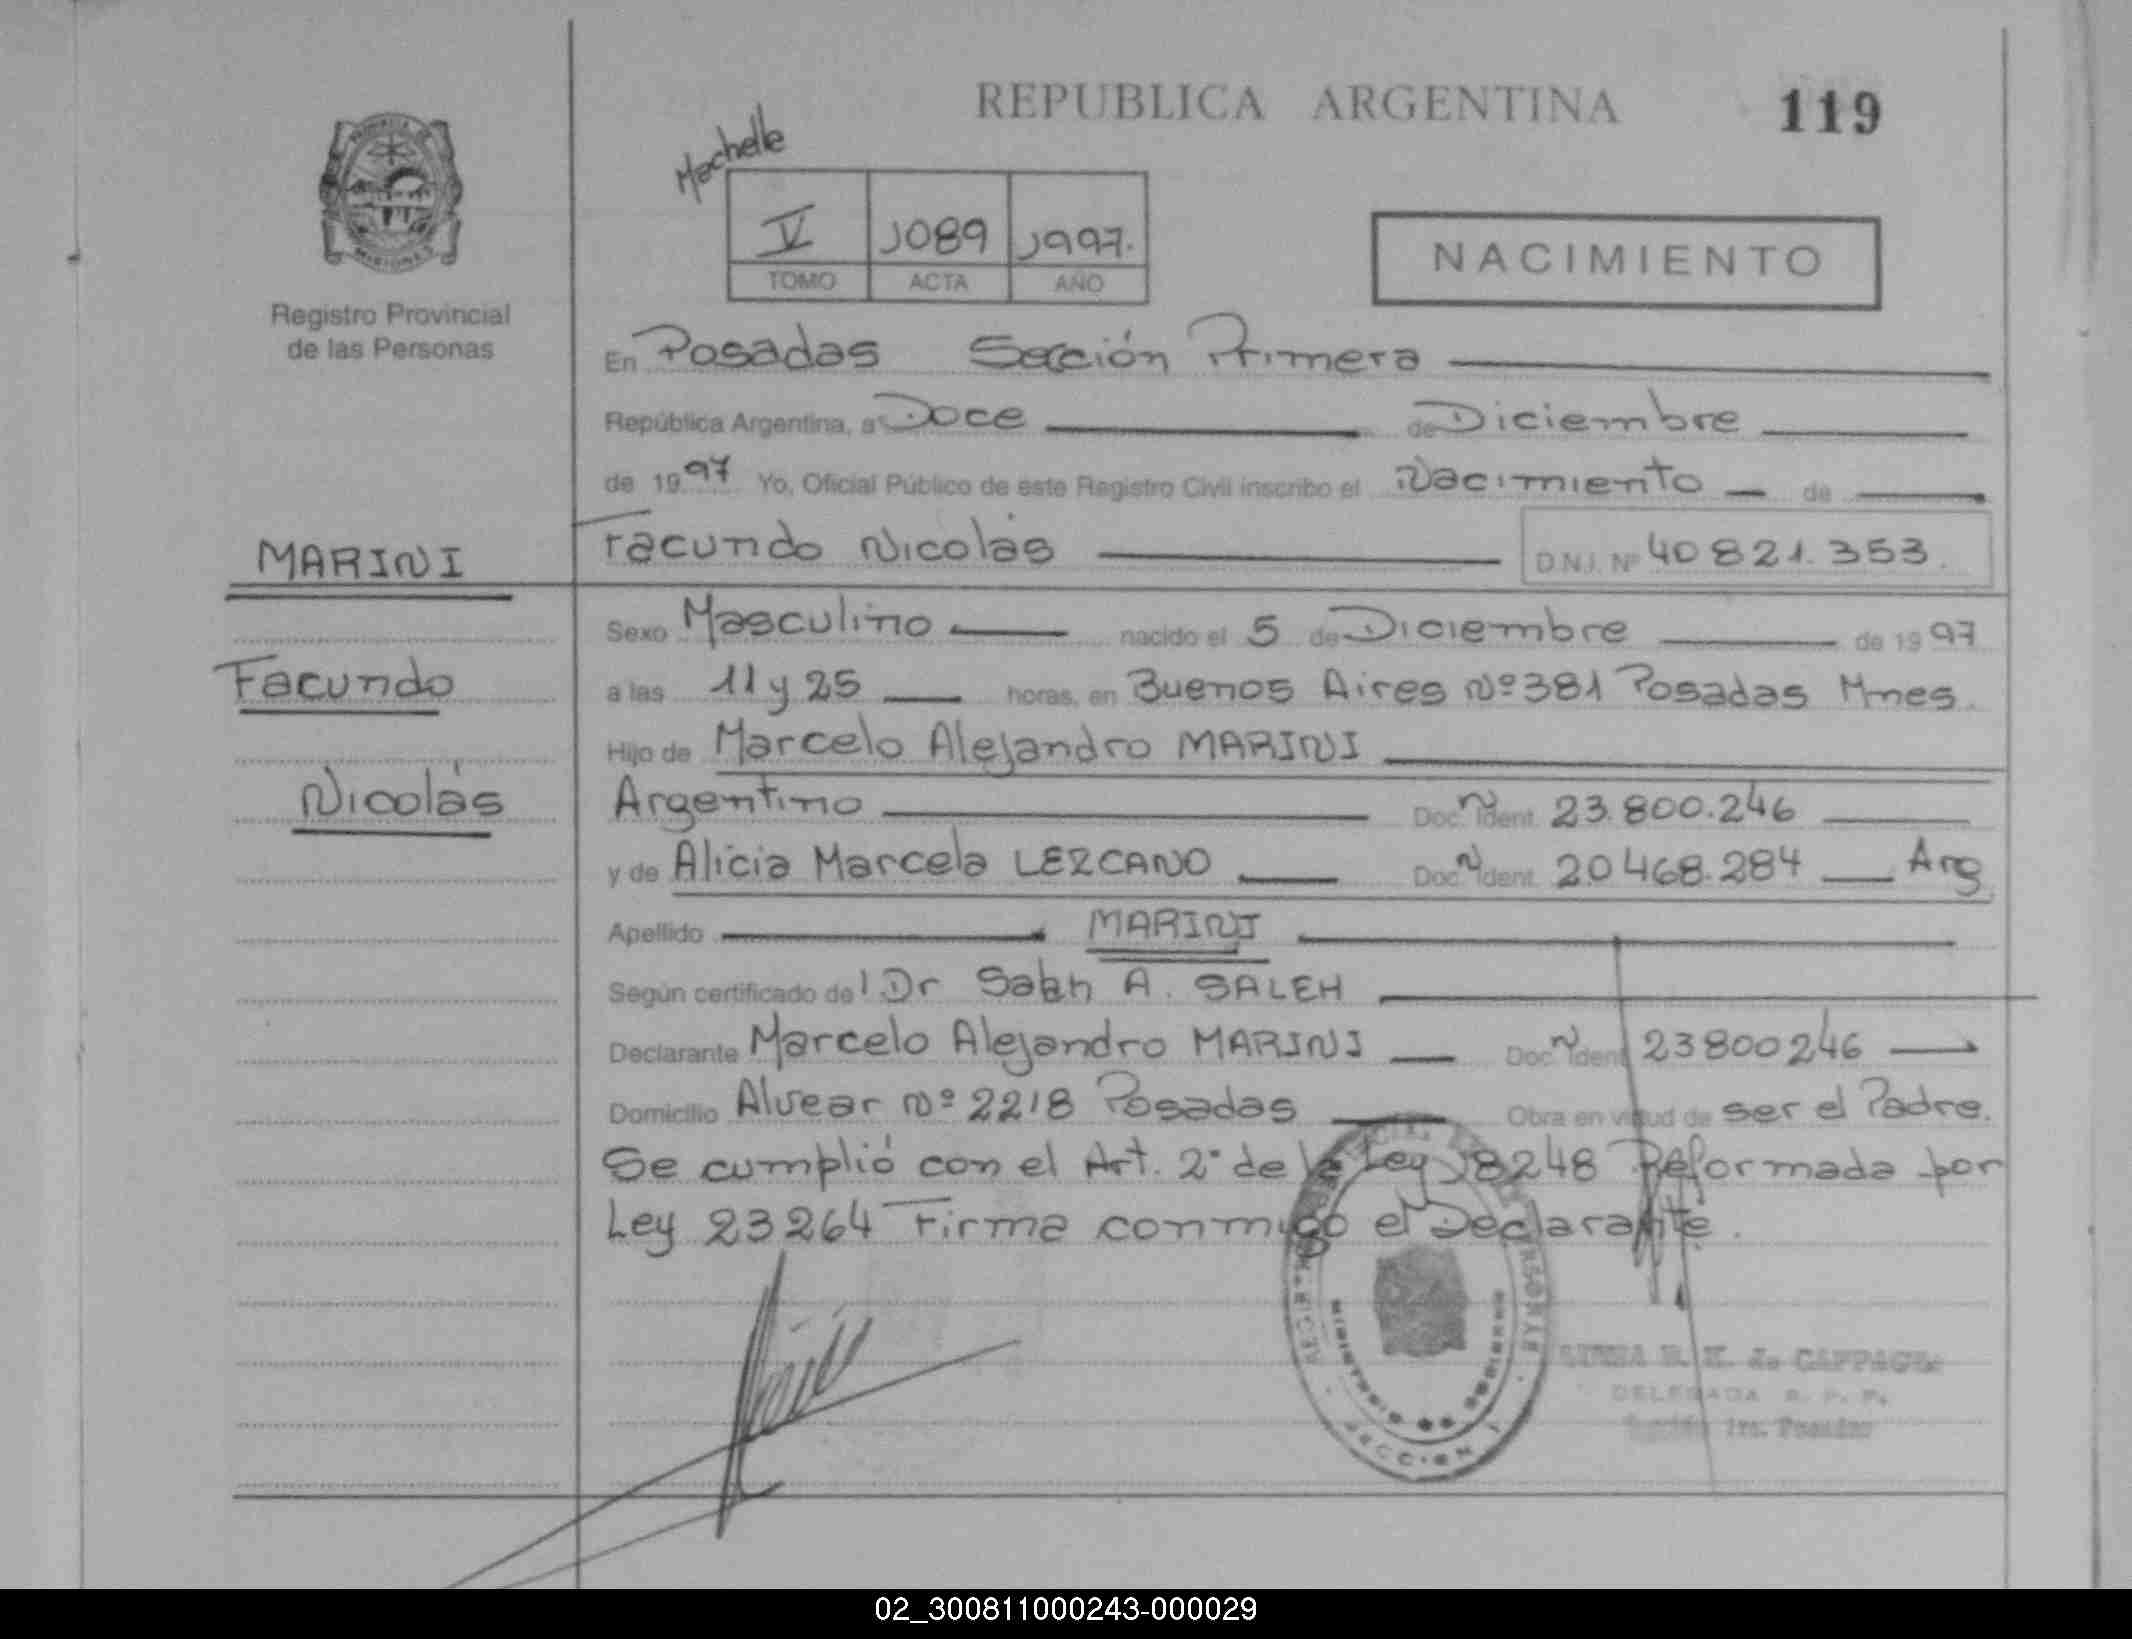 REPUBLICA ARGENTINA
119
Machelle
V 1089 1997.
TOMO ACTA AÑO
NACIMIENTO
PROVINCIA DE MISIONES
Registro Provincial
de las Personas
En Posadas Sección Primera
República Argentina, a Doce de Diciembre
de 1997 Yo, Oficial Público de este Registro Civil inscribo el Nacimiento de
MARINI
Facundo Nicolás D.N.I. Nº 40821.353.
Sexo Masculino nacido el 5 de Diciembre de 1997
Facundo
a las 11 y 25 horas, en Buenos Aires Nº 381 Posadas Mnes.
Hijo de Marcelo Alejandro MARINI
Nicolás
Argentino Doc. N Ident. 23.800.246
y de Alicia Marcela LEZCANO Doc. N Ident. 20468.284 Arg
Apellido MARINI
Según certificado del Dr A. SALEH
Declarante Marcelo Alejandro MARINI Doc. N Ident. 23800246
Domicilio Alvear Nº 2218 Posadas Obra en virtud de ser el Padre.
Se cumplió con el Art. 2º de la Ley 18248 Reformada por
Ley 23264 Firma conmigo el Declarante.
MINISTERIO DE GOBIERNO
SECCION 1
DELEGADA R. P. P.
Sección 1ra. Posadas
02_300811000243-000029